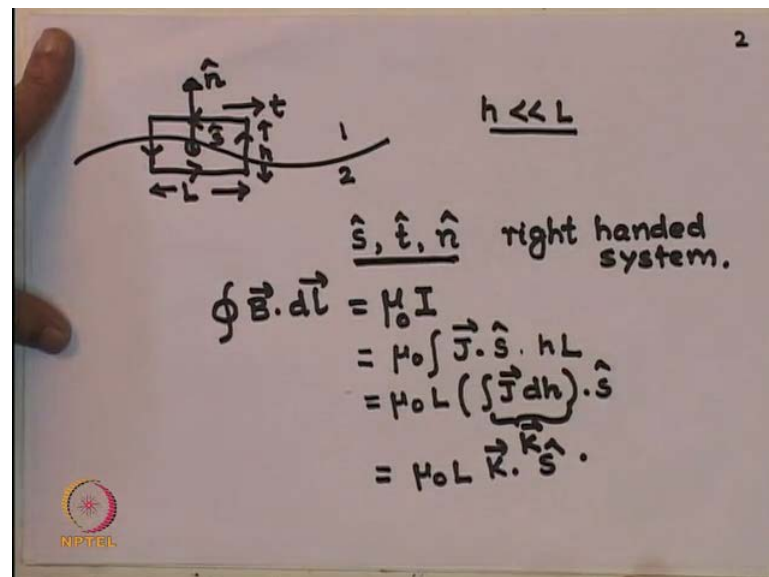 2
n̂
t
ŝ
h
L
1
2
h << L
ŝ, t̂, n̂ right handed
system.
∮ B⃗ . dl⃗ = μ₀ I
= μ₀ ∫ J⃗ . ŝ . hL
= μ₀ L (∫ J⃗ dh) . ŝ
K⃗
= μ₀ L K⃗ . ŝ .
NPTEL